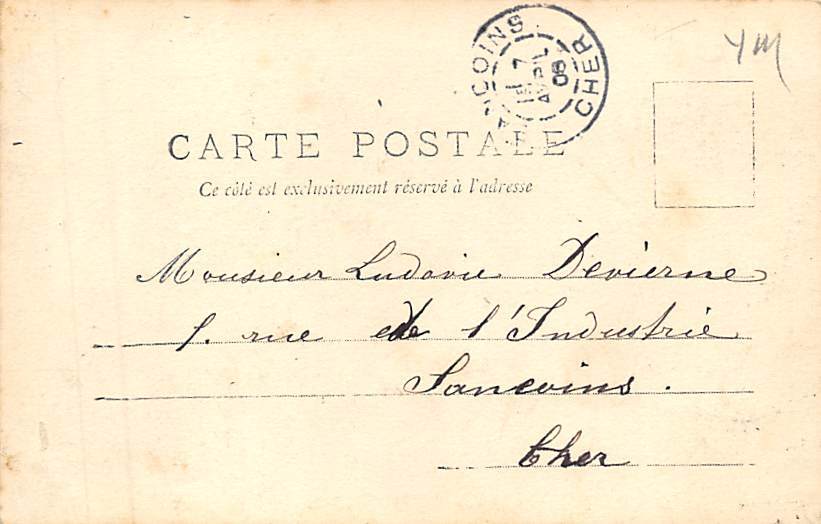 SANCOINS
CHER
7
AVRIL
06
CARTE POSTALE
Ce côté est exclusivement réservé à l'adresse
Monsieur Ludovic Devierne
rue de l'Industrie
Sancoins.
Cher